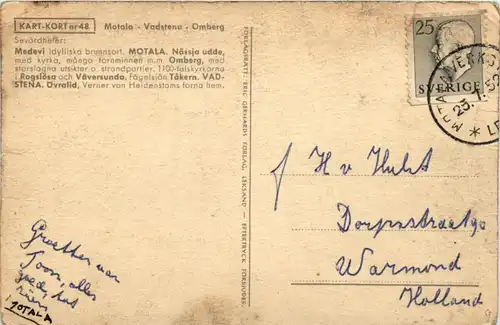 KART-KORT nr 48 Motala - Vadstena - Omberg
Sevärdheter:
Medevi idylliska brunnsort. MOTALA. Nässja udde,
med kyrka, många fornminnen m.m. Omberg, med
storslagna utsikter o. strandpartier. 1100-talskyrkorna
i Rogslösa och Väversunda. Fågelsjön Tåkern. VAD-
STENA. Övralid, Verner von Heidenstams forna hem.
FÖRLAGSRÄTT: ERIC GERHARDS FÖRLAG, LEKSAND — EFTERTRYCK FÖRBJUDES.
25
SVERIGE
MOTALA VERKST
H v Hulst
Dorpsstraat 90
Warmond
Holland
Groeten van
Toon, alles
goed tot
ziens
MOTALA